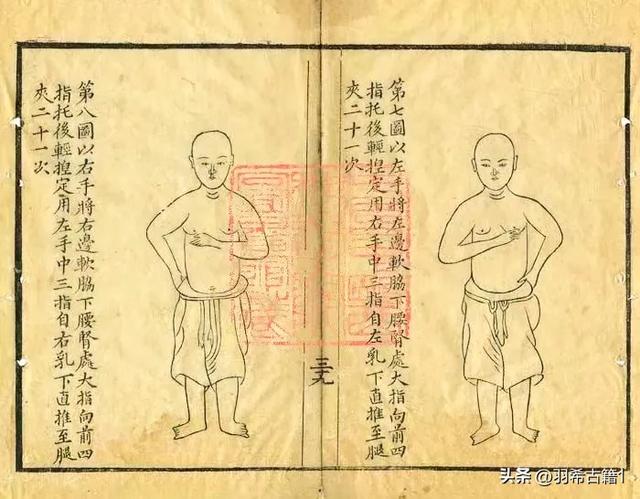 第七圖以左手將左邊軟脇下腰腎處大指向前四
指托後輕揑定用右手中三指自左乳下直推至腿
夾二十一次
三九
第八圖以右手將右邊軟脇下腰腎處大指向前四
指托後輕揑定用左手中三指自右乳下直推至腿
夾二十一次
头条 @羽希古籍1